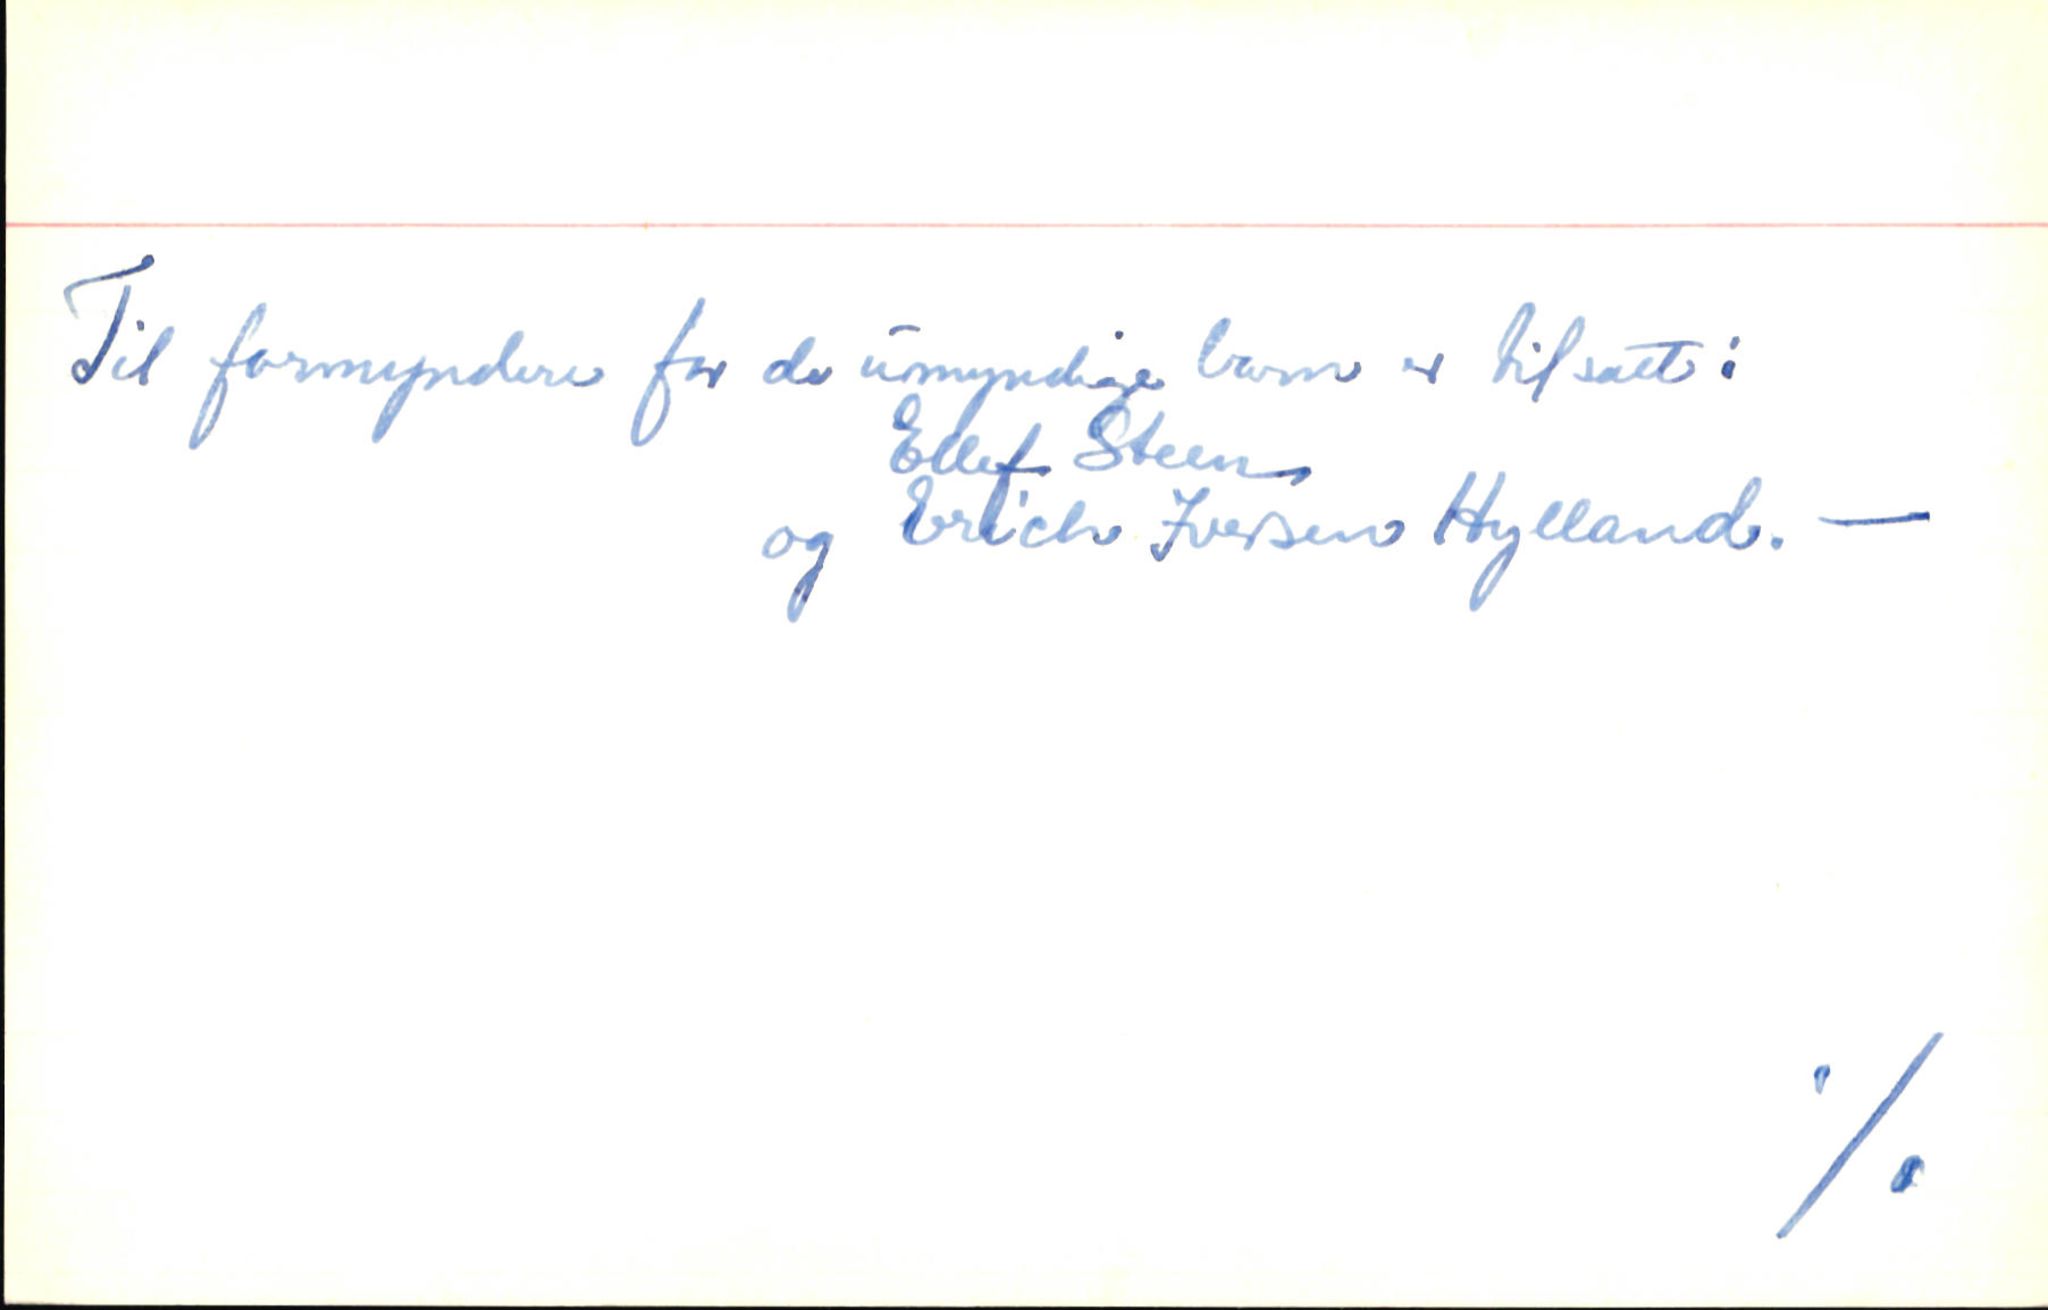 Til formyndere for de umyndige barn er tilsatt:
Ellef Steen
og Erich Iversen Hylland. —
./.